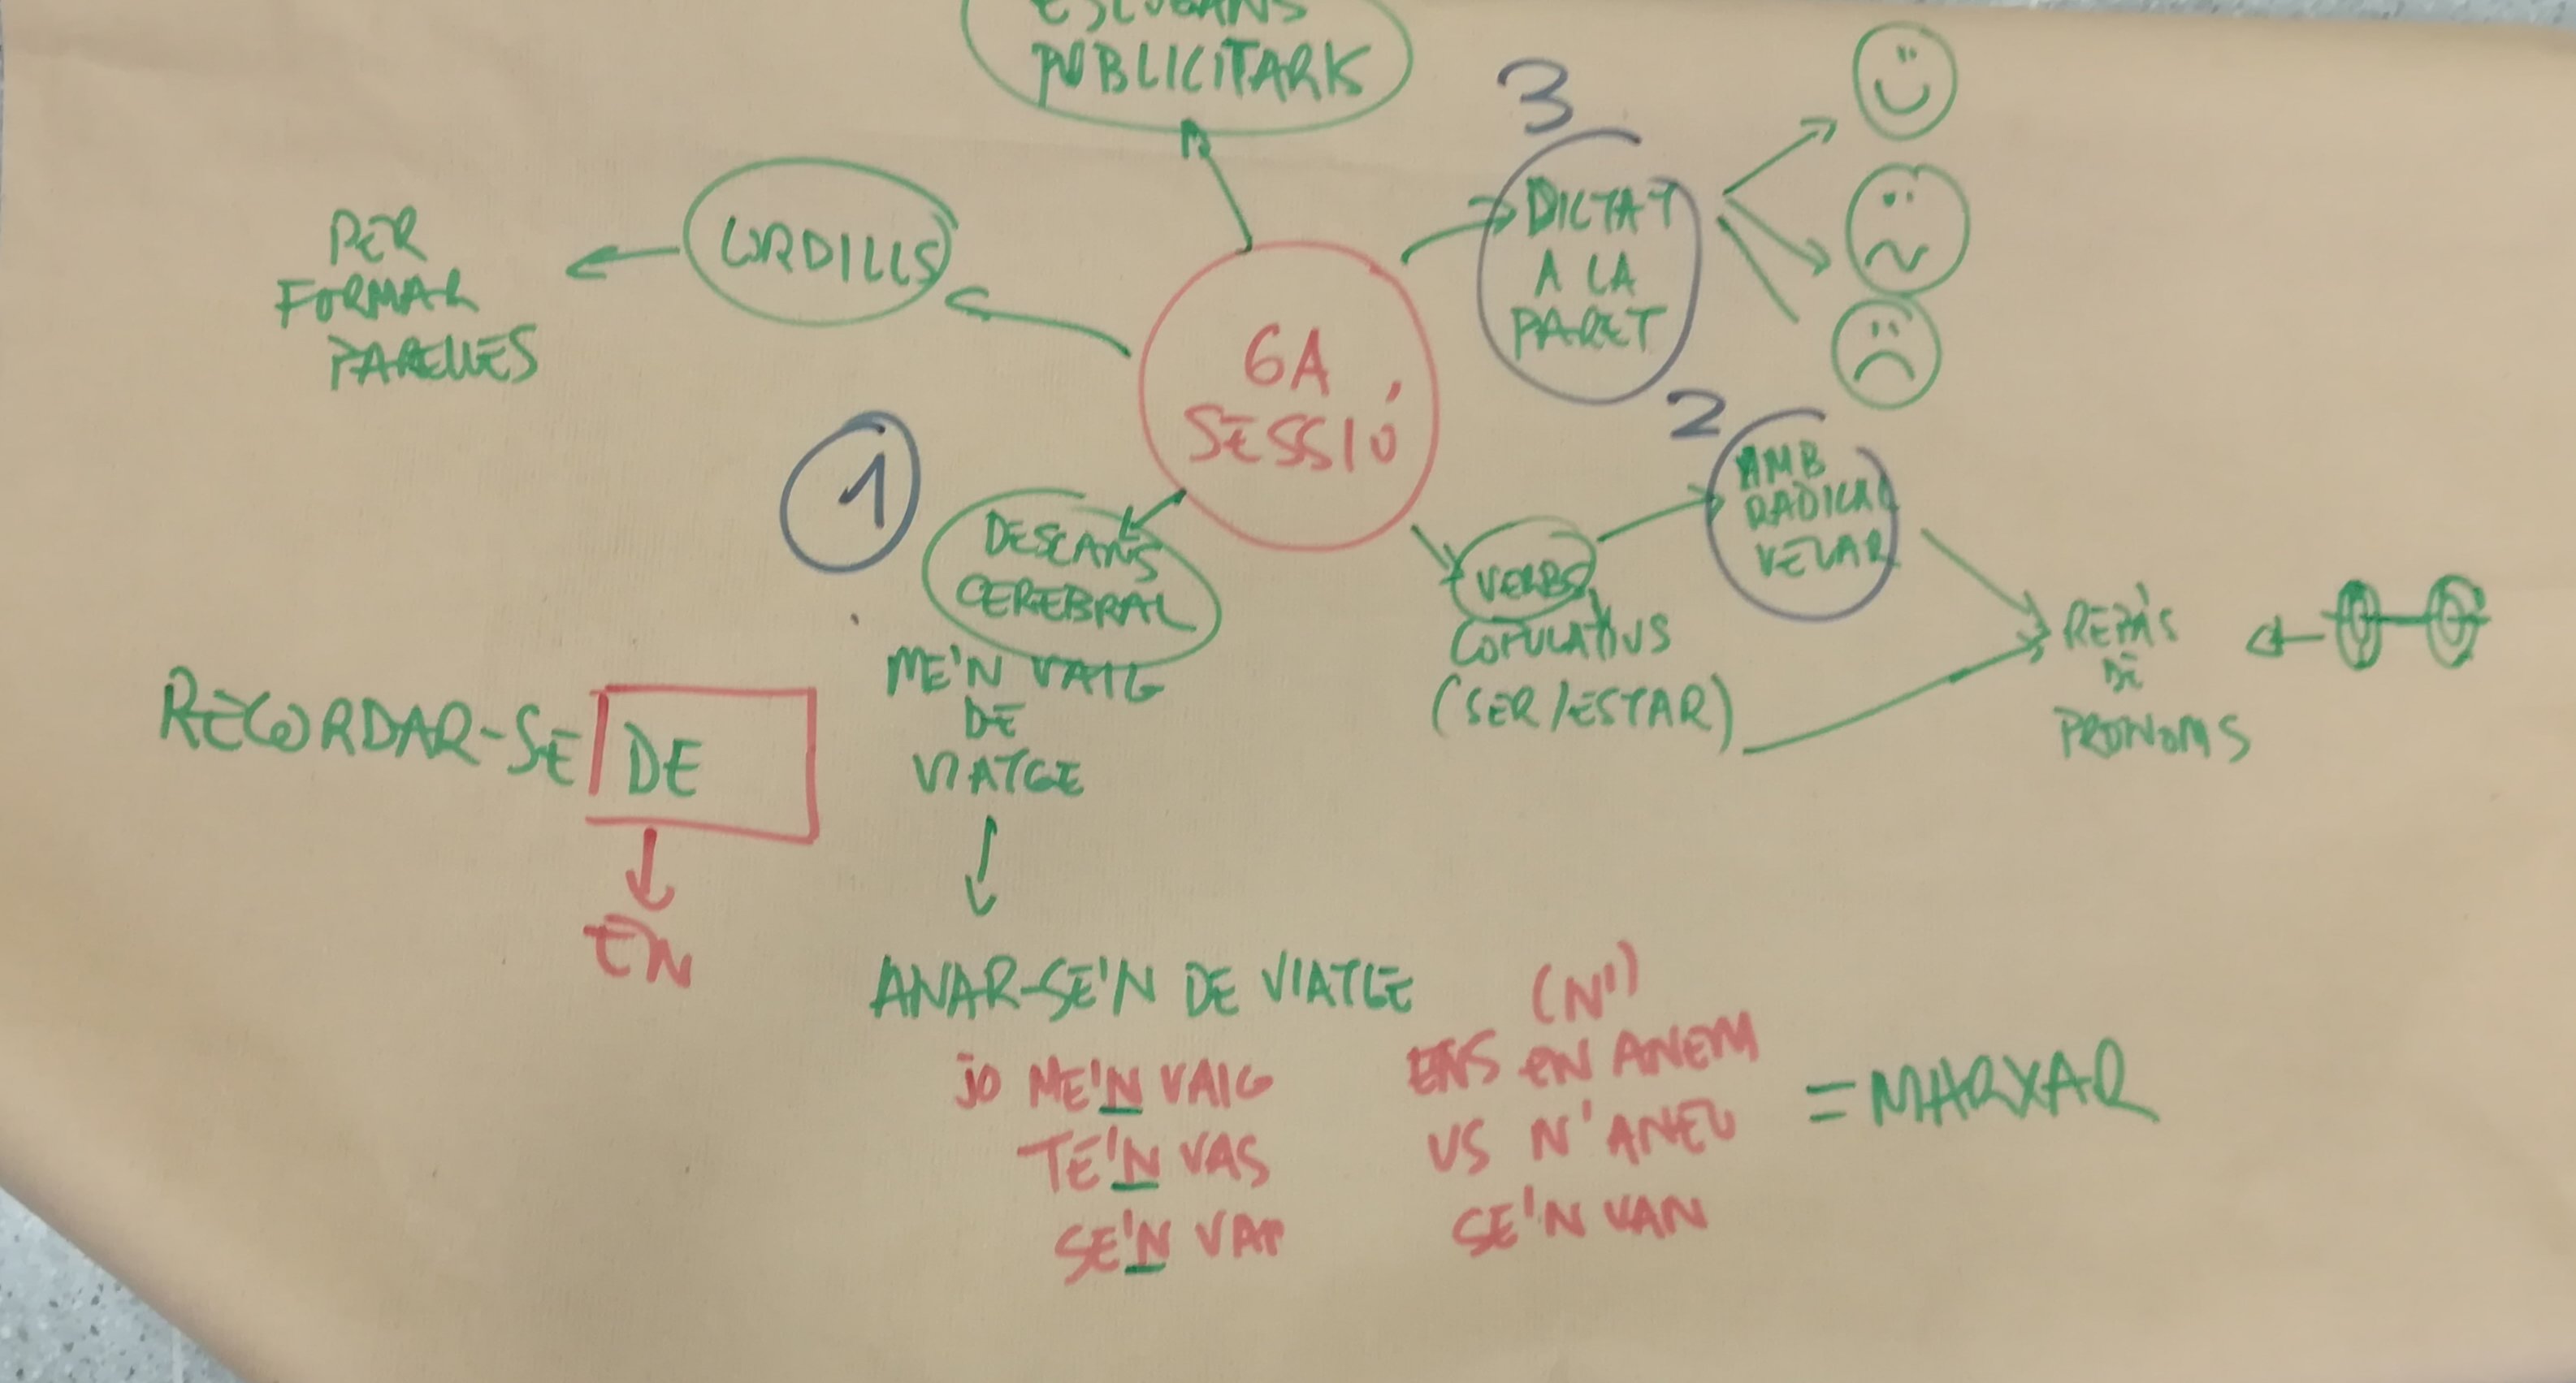 ESLOGANS
PUBLICITARIS
3
DICTAT
A LA
PARET
CORDILLS
PER
FORMAR
PARELLES
6A
SESSIÓ
1
DESCANS
CEREBRAL
ME'N VAIG
DE
VIATGE
2
AMB
RADICAL
VELAR
VERBS
COPULATIUS
(SER/ESTAR)
REPÀS
DE
PRONOMS
RECORDAR-SE DE
EN
ANAR-SE'N DE VIATGE
JO ME'N VAIG
TE'N VAS
SE'N VA
(N')
ENS EN ANEM
US N'ANEU
SE'N VAN
= MARXAR